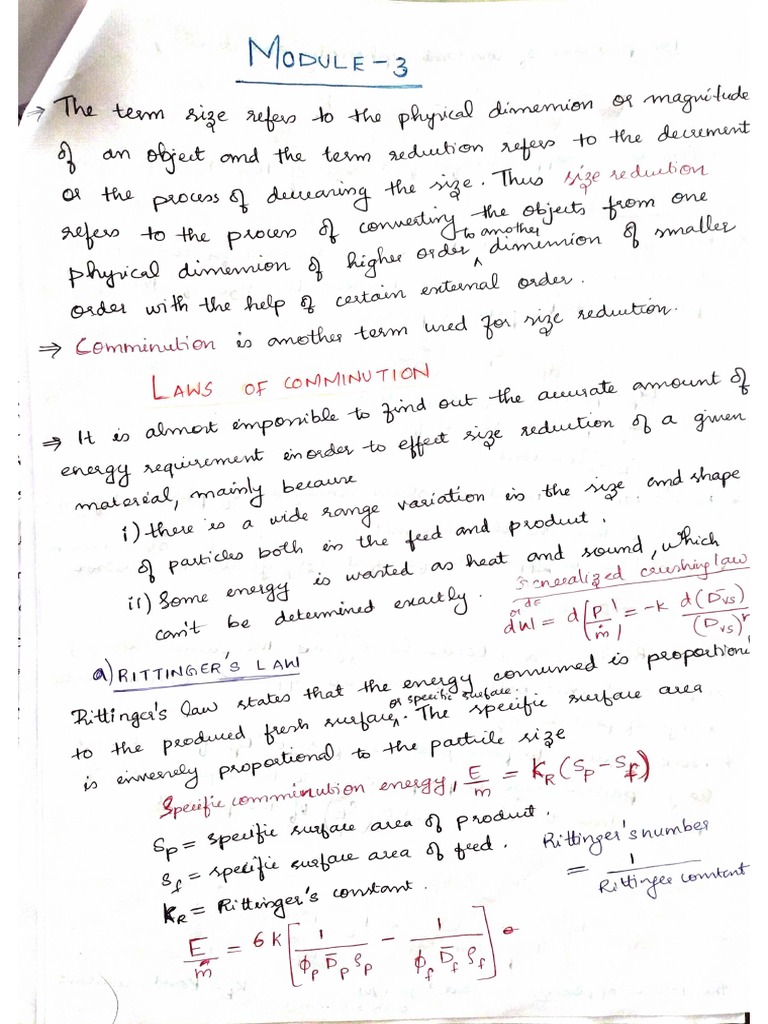 MODULE-3
⇒ The term size refers to the physical dimension or magnitude
of an object and the term reduction refers to the decrement
or the process of decreasing the size. Thus size reduction
refers to the process of converting the objects from one
physical dimension of higher order to another dimension of smaller
order with the help of certain external order.
⇒ Comminution is another term used for size reduction.
LAWS OF COMMINUTION
⇒ It is almost impossible to find out the accurate amount of
energy requirement inorder to effect size reduction of a given
material, mainly because
i) there is a wide range variation in the size and shape
of particles both in the feed and product.
ii) Some energy is wasted as heat and sound, which
can't be determined exactly.
Generalized crushing law
or dE
dW = d(P/ṁ) = -k d(D̄vs)/(Dvs)^r
a) RITTINGER'S LAW
Rittinger's law states that the energy consumed is proportional
to the produced fresh surface or specific surface. The specific surface area
is inversely proportional to the particle size
Specific comminution energy, E/m = KR (Sp - Sf)
Sp = specific surface area of product.
Sf = specific surface area of feed.
KR = Rittinger's constant.
Rittinger's number
= 1/Rittinger constant
E/m = 6K [1/(ϕp D̄p ρp) - 1/(ϕf D̄f ρf)]